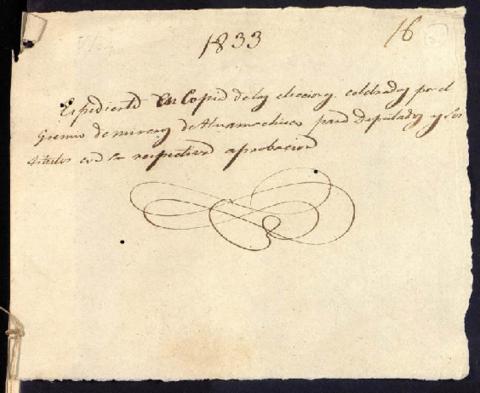 1833
16
Expediente En Copia de las elecciones celebradas por el
Gremio de mineria de Huamachuco para Deputados y Sos
titutos con la respectiva aprobacion